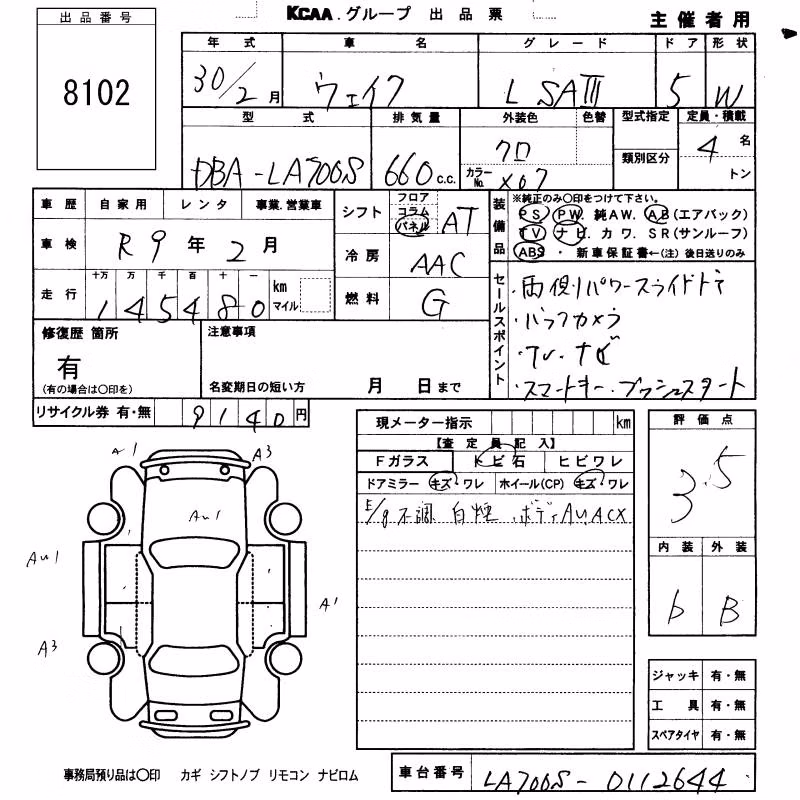 出品番号
8102
KCAA.グループ 出品票
主催者用
年式 車名 グレード ドア 形状
30/2月 ウェイク L SAⅢ 5 W
型式 排気量 外装色 色替 型式指定 定員・積載
DBA-LA700S 660c.c. クロ 類別区分 4名
カラーNo. X07 トン
車歴 自家用 レンタ 事業.営業車
車検 R9年2月
走行 十万 万 千 百 十 一 km マイル
145480
シフト フロア コラム パネル AT
冷房 AAC
燃料 G
装備品
※純正のみ○印をつけて下さい。
PS PW. 純AW. AB(エアバック)
TV ナビ. カワ. SR(サンルーフ)
ABS ・ 新車保証書←(注) 後日送りのみ
セールスポイント
・両側パワースライドドア
・バックカメラ
・TV・ナビ
・スマートキー・プッシュスタート
修復歴 箇所
有
(有の場合は○印を)
注意事項
名変期日の短い方 月 日まで
リサイクル券 有・無 9140円
現メーター指示 km
【査定員記入】
Fガラス トビ石 ヒビワレ
ドアミラー キズ・ワレ ホイール(CP) キズ・ワレ
E/g不調 白煙 ボディAU.ACX
評価点
3.5
内装 外装
b B
A1 A3
AU1
AU1
A1
A3
ジャッキ 有・無
工具 有・無
スペアタイヤ 有・無
事務局預り品は○印 カギ シフトノブ リモコン ナビロム
車台番号 LA700S-0112644